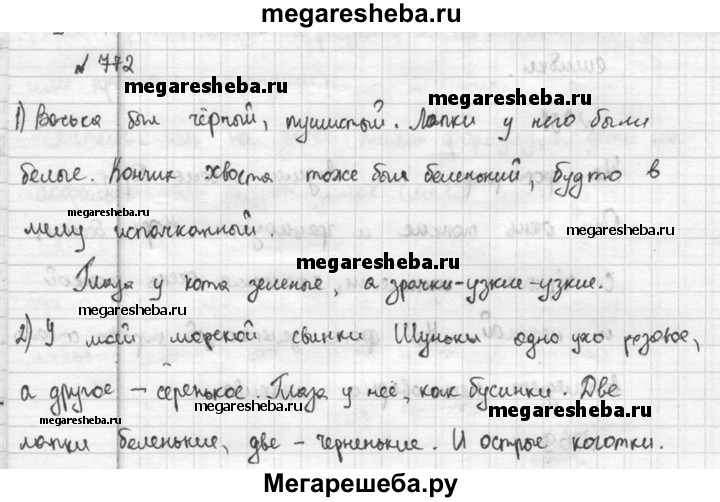 megaresheba.ru
№ 772
megaresheba.ru
megaresheba.ru
1) Васька был чёрный, пушистый. Лапки у него были
белые. Кончик хвоста тоже был беленький, будто в
megaresheba.ru
мелу испачканный.
megaresheba.ru
megaresheba.ru
Глаза у кота зеленые, а зрачки-узкие-узкие.
megaresheba.ru
2) У май морской свинки Шуньки одно ухо розовое,
а другое – серенькое. Глаза у неё, как бусинки. Две
megaresheba.ru
megaresheba.ru
лапки беленькие, две – черненькие. И острые коготки.
Мегарешеба.ру